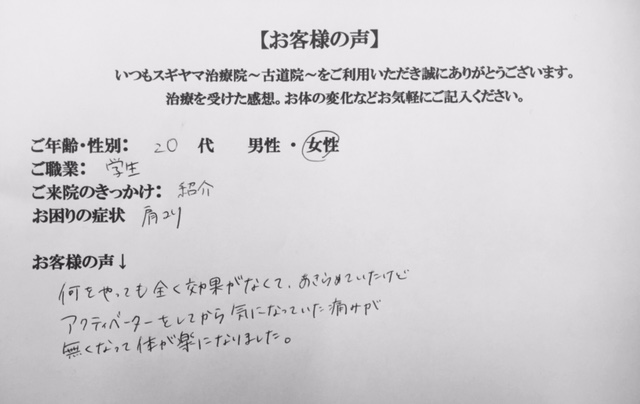 【お客様の声】
いつもスギヤマ治療院～古道院～をご利用いただき誠にありがとうございます。
治療を受けた感想。お体の変化などお気軽にご記入ください。
ご年齢・性別： 20 代 男性 ・ 女性
ご職業： 学生
ご来院のきっかけ： 紹介
お困りの症状 肩コリ
お客様の声↓
何をやっても全く効果がなくて、あきらめていたけど
アクティベーターをしてから気になっていた痛みが
無くなって体が楽になりました。